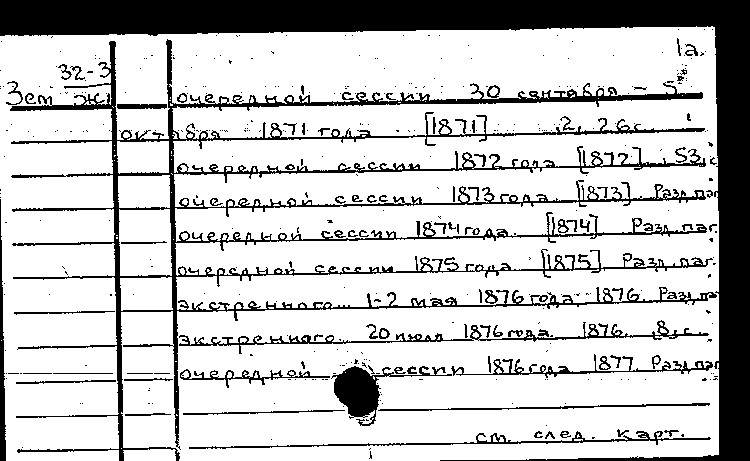 1а.
32-3
Зем эк
очередной сессии 30 сентября - 5
октября 1871 года [1871] 2, 26 с.
очередной сессии 1872 года [1872] , 53, с
очередной сессии 1873 года [1873] Разд. паг
очередной сессии 1874 года [1874] Разд. паг.
очередной сессии 1875 года [1875] Разд. паг.
экстренного 1-2 мая 1876 года 1876. Разд. па
экстренного 20 июля 1876 года 1876. , 8, с.
очередной сессии 1876 года 1877. Разд. паг
см. след. карт.